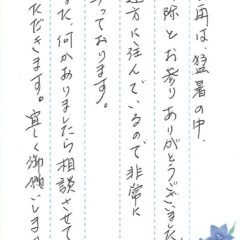 毎は、猛暑の中、
際とお参りありがとうございました
遠方に注んでいるので非常に
っております。
た、何かありましたら相談させて
ただきます。宜しく御願いします